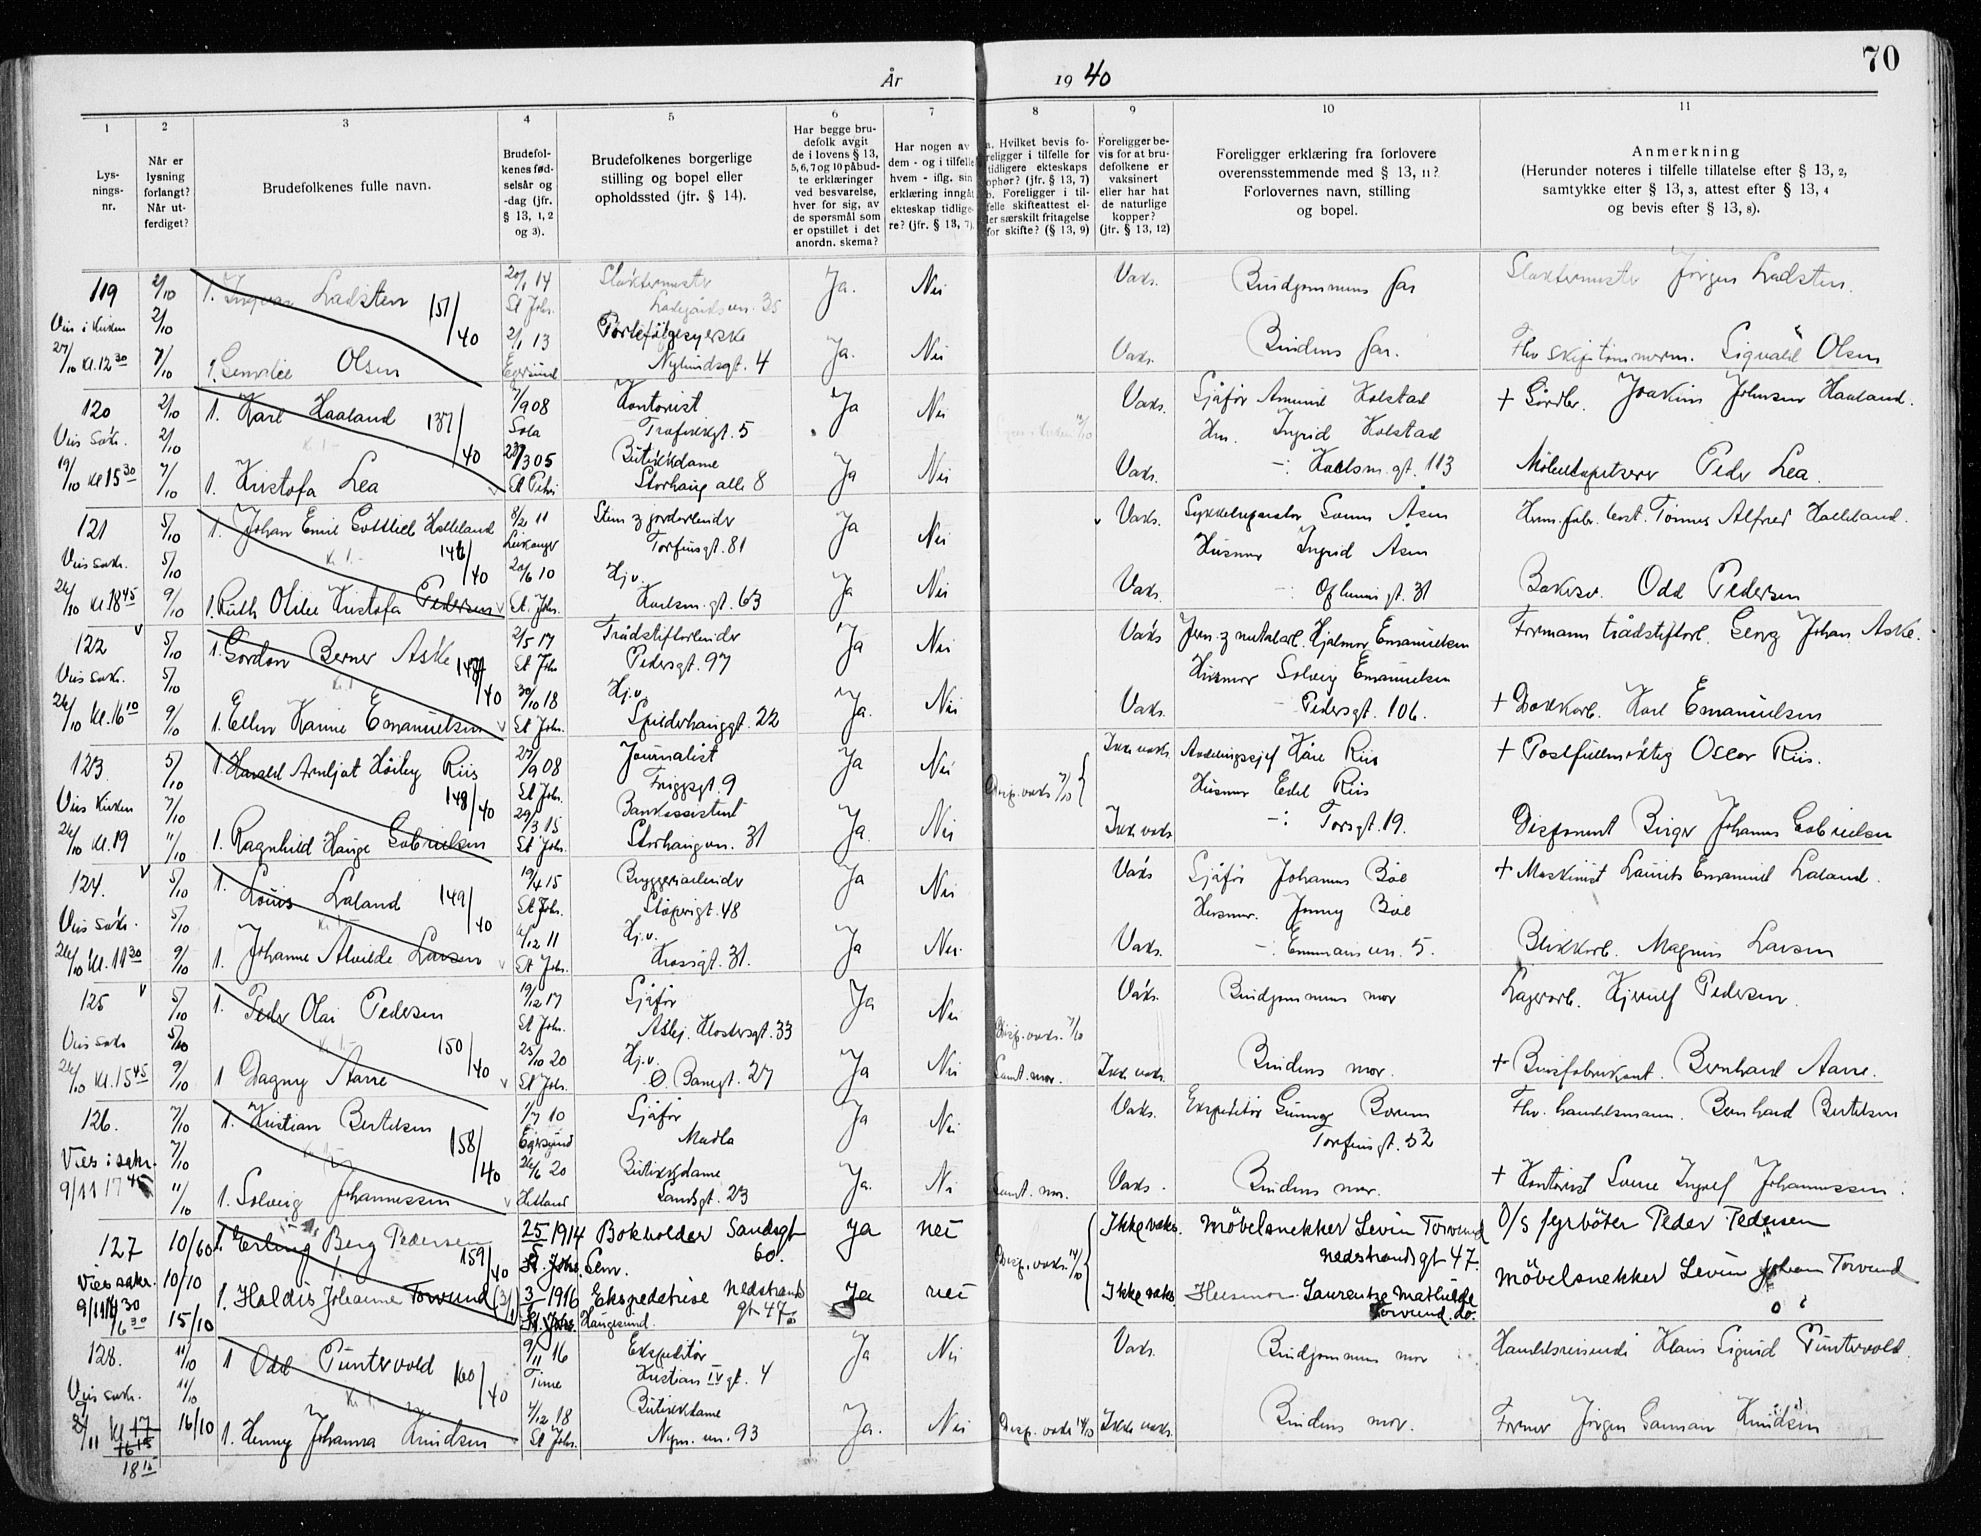 70
År 1940
1 2 3 4 5 6 7 8 9 10 11
Lysnings-nr.
Når er lysning forlangt? Når utferdiget?
Brudefolkenes fulle navn.
Brudefolkenes fødselsår og -dag (jfr. § 13, 1, 2 og 3).
Brudefolkenes borgerlige stilling og bopel eller opholdssted (jfr. § 14).
Har begge brudefolk avgit de i lovens § 13, 5, 6, 7 og 10 påbudte erklæringer ved besvarelse, hver for sig, av de spørsmål som er opstillet i det anordn. skema?
Har nogen av dem - og i tilfelle hvem - iflg. sin erklæring inngått ekteskap tidligere? (jfr. § 13, 7).
a. Hvilket bevis foreligger i tilfelle for tidligere ekteskaps ophør? (jfr. § 13, 7) b. Foreligger i tilfelle skifteattest eller særskilt fritagelse for skifte? (§ 13, 9)
Foreligger bevis for at brudefolkene er vaksinert eller har hat de naturlige kopper? (jfr. § 13, 12)
Foreligger erklæring fra forlovere overensstemmende med § 13, 11? Forlovernes navn, stilling og bopel.
Anmerkning
(Herunder noteres i tilfelle tillatelse efter § 13, 2, samtykke efter § 13, 3, attest efter § 13, 4 og bevis efter § 13, 8).
119 2/10 1. Ingvar Ladsten 151/40 20/1 14 Slaktermester Ja. Nei Vaks. Brudgommens far Slaktermester Jørgen Ladsten.
Vies i Kirken 2/10 St Joh. Ladegårdsvn. 35
27/10 kl. 12 30 7/10 1. Olsen 2/1 13 Egersund Nylundsgt. 4 Ja. Nei Vaks. Brudens far. Fhv skipstømmerm. Sigvald Olsen
120 2/10 1. Karl Haaland 137/40 7/9 08 Kontorist Ja Nei Vaks. Sjåfør Amund Kolstad + Gårdbr. Joakim Johnsen Haaland.
Vies Sakr. 2/10 Sola Hm. Ingrid Kolstad
19/10 kl 15 30 7/10 1. Kristofa Lea 23/3 05 Butikkdame Ja Nei Vaks. -:- Haalsm. gt. 113 Peder Lea.
St Petri Storhaug alle 8
121 5/10 1. Johan Emil Gottlieb Halleland 146/40 8/2 11 Sten z jordarbeider Ja Nei Vaks. Sverre Asen Tønnes Alfred Halleland.
Vies sakr. 5/10 Torfinsgt. 81 Husmor Ingrid Asen
26/10 kl. 18 45 9/10 1. Ruth Otilie Kristofa Pedersen 20/6 10 Hj.v. Ja Nei Vaks. gt. 31 Odd Pedersen
St. Joh. Haalsm. gt. 63
122 5/10 1. Gordon Berner Aske 147/40 2/5 17 Trådstiftarbeider Ja Nei Vaks Jern z metalarb. Hjalmar Emanuelsen Formann trådstiftarb. Georg Johan Aske.
Vies sakr. 5/10 St Joh Pedersgt. 97 Husmor Solveig Emanuelsen
26/10 kl. 16 10 9/10 1. Ellen Karine Emanuelsen 30/10 18 Hj.v. Ja. Nei Vaks. Pedersgt. 106. + Dokkarb. Karl Emanuelsen
St Joh. Spilderhauggt. 22
123 5/10 1. Harald Arnljot Høiby Riis 148/40 27/9 08 Journalist Ja Nei Ikke vaks. Avdelingssjef Kåre Riis + Postfullmektig Oscar Riis.
Vies Kirken 7/10 St Joh. Friggsgt. 9 Disp. vaks. 7/10 Husmor Edel Riis
26/10 kl. 19 11/10 1. Ragnhild Hauge Gabrielsen 29/3 15 Bankassistent Ja. Nei Ikke vaks -:- Torsgt. 19. Disponent Birger Johannes Gabrielsen
St Joh. Storhaugvn. 31
124. 5/10 1. Louis Laland 149/40 19/4 15 Bryggeriarbeider Ja Nei Vaks Sjåfør Johannes Bøe + Maskinist Laurits Emanuel Laland.
Vies Sakr. 5/10 St Joh. Støperigt. 48 Husmor. Jenny Bøe
26/10 kl. 11 30 9/10 1. Johanne Alvilde Larsen 12 11 Hj.v. Ja Nei. Vaks. -:- Emmausvn. 5. Blikkarb. Magnus Larsen
St Joh. Krossgt. 31.
125 5/10 1. Peder Olai Pedersen 150/40 19/12 17 Sjåfør Ja Nei Vaks. Brudgommens mor Lagerarb. Hjerulf Pedersen.
Vies sakr 5/10 St Joh. Asbj. Klostersgt. 33 Disp. vaks. 7/10
26/10 kl. 15 45 9/10 1 Dagny Aarre 25/10 20 Hj.v. Ja Nei Samt. mor. Ikke vaks. Brudens mor. + Brusfabrikant. Bernhard Aarre.
St Joh. Ø. Banegt. 27
126. 7/10 1. Kristian Bertelsen 158/40 1/7 10 Sjåfør Ja Nei Vaks. Ekspeditør Gunnar Fhv. handelsmann. Bernhard Bertelsen
Vies i sakr. 7/10 Egersund Madla Torfinsgt. 52
9/11 17 45 11/10 1. Solveig Johannessen 26/6 20 Butikkdame Ja. Nei Samt. mor. Vaks. Brudens mor. + Kontorist Sverre Ingolf Johannessen.
Hetland Sandsgt. 23
127 10/60 1. Erling Berg Pedersen 159/40 25/5 1914 Bokholder Sandsgt 60. Ja nei Ikke vaks. Møbelsnekker Levin Torvund O/s fyrbøter Peder Pedersen
Vies sakr. 10/10 St. Johs. Disp. vaks. 14/10 Nedstrandsgt 47.
9/11 kl 6 30 15/10 1. Haldis Johanne Torvund 3/ 1916 Ekspeditrise Nedstrandsgt 47 Ja nei Ikke vaks. Husmor Lauentze Mathilde Torvund. do. Møbelsnekker Levin Johan Torvund
Haugesund.
128. 11/10 1 Odd Puntervold 160/40 9/11 16 Ekspeditør Ja Nei Vaks. Brudgommens mor Handelsreisende Klaus Sigurd Puntervold.
Vies sakr. 11/10 Time Kristian IV gt. 4
2/11 kl 17 16/10 1. Henny Johanna Knudsen 4/12 18 Butikkdame Ja. Nei Disp. vaks 14/10 Ikke vaks. Brudens mor. Former Jørgen Knudsen
16 15 St Joh. Nym. vn. 93
18 15